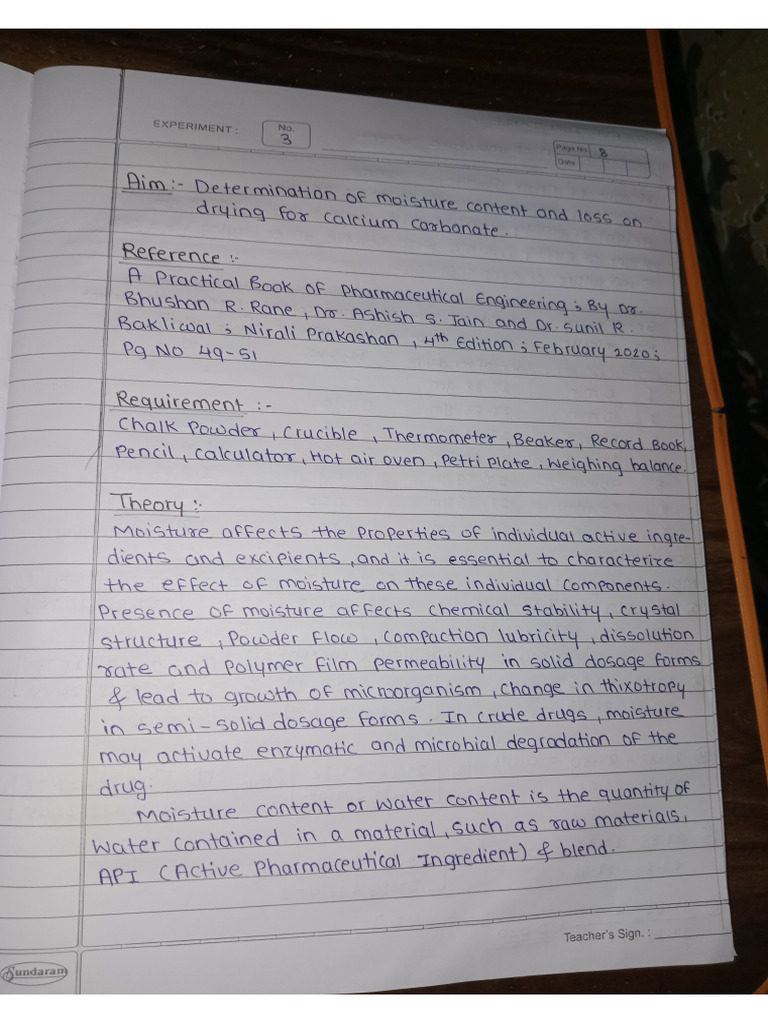 EXPERIMENT :
No.
3
Page No. 8
Date
Aim :- Determination of moisture content and loss on
drying for calcium carbonate.
Reference :-
A Practical Book of Pharmaceutical Engineering ; By Dr.
Bhushan R. Rane , Dr. Ashish S. Jain and Dr. Sunil R.
Bakliwal ; Nirali Prakashan , 4th Edition ; February 2020 ;
Pg No 49-51
Requirement :-
Chalk Powder , Crucible , Thermometer , Beaker, Record Book,
Pencil , Calculator , Hot air oven , Petri Plate , Weighing balance.
Theory :-
Moisture affects the properties of individual active ingre-
dients and excipients , and it is essential to characterize
the effect of moisture on these individual components.
Presence of moisture affects chemical stability , crystal
structure , Powder flow , compaction lubricity , dissolution
rate and polymer film permeability in solid dosage forms
& lead to growth of microorganism , change in thixotropy
in semi-solid dosage forms. In crude drugs , moisture
may activate enzymatic and microbial degradation of the
drug.
Moisture content or water content is the quantity of
water contained in a material , such as raw materials,
API (Active Pharmaceutical Ingredient) & blend.
Teacher's Sign. :
Sundaram